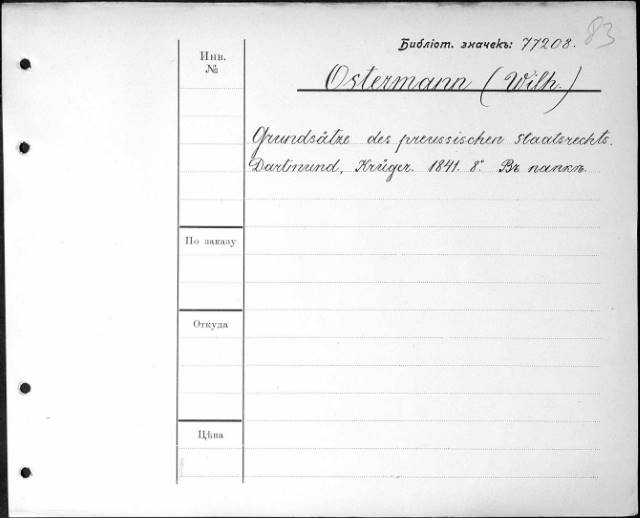 83
Библіот. значекъ: 77208.
Инв.
№
Ostermann (Wilh.)
Grundsätze des preussischen Staatsrechts.
Dartmund, Krüger. 1841. 8° Въ папкѣ.
По заказу
Откуда
Цѣна